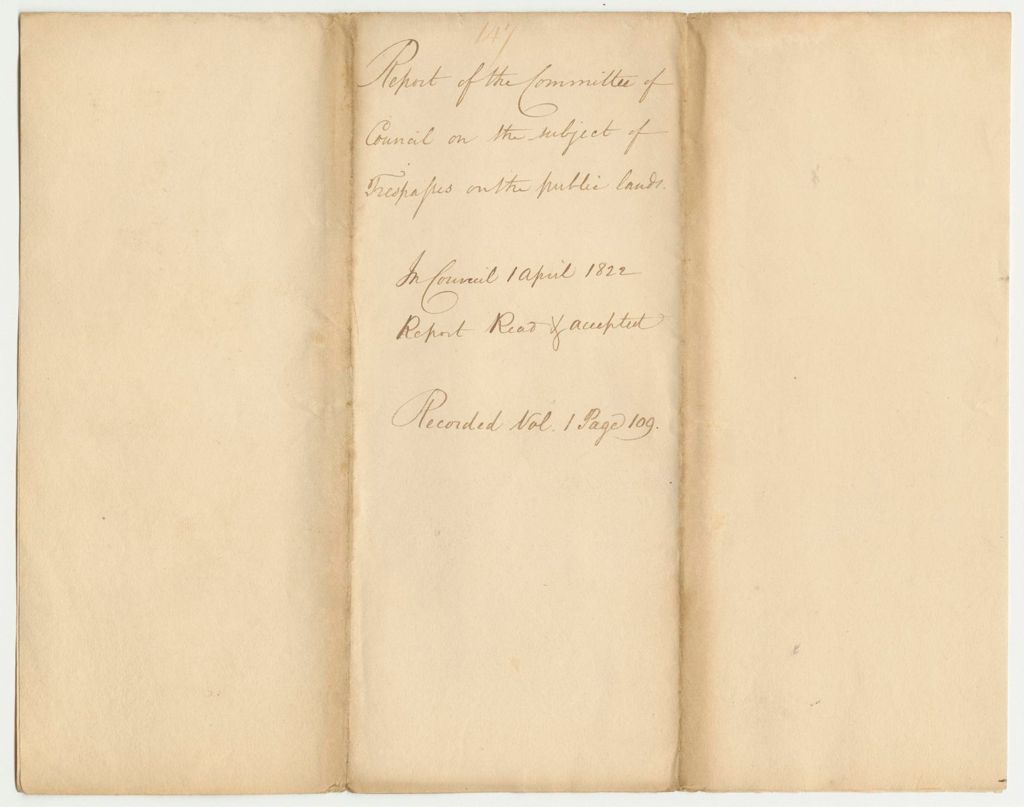 147
Report of the Committee of
Council on the subject of
Trespasses on the public lands.
In Council 1 April 1822
Report Read & accepted
Recorded Vol. 1 Page 109.